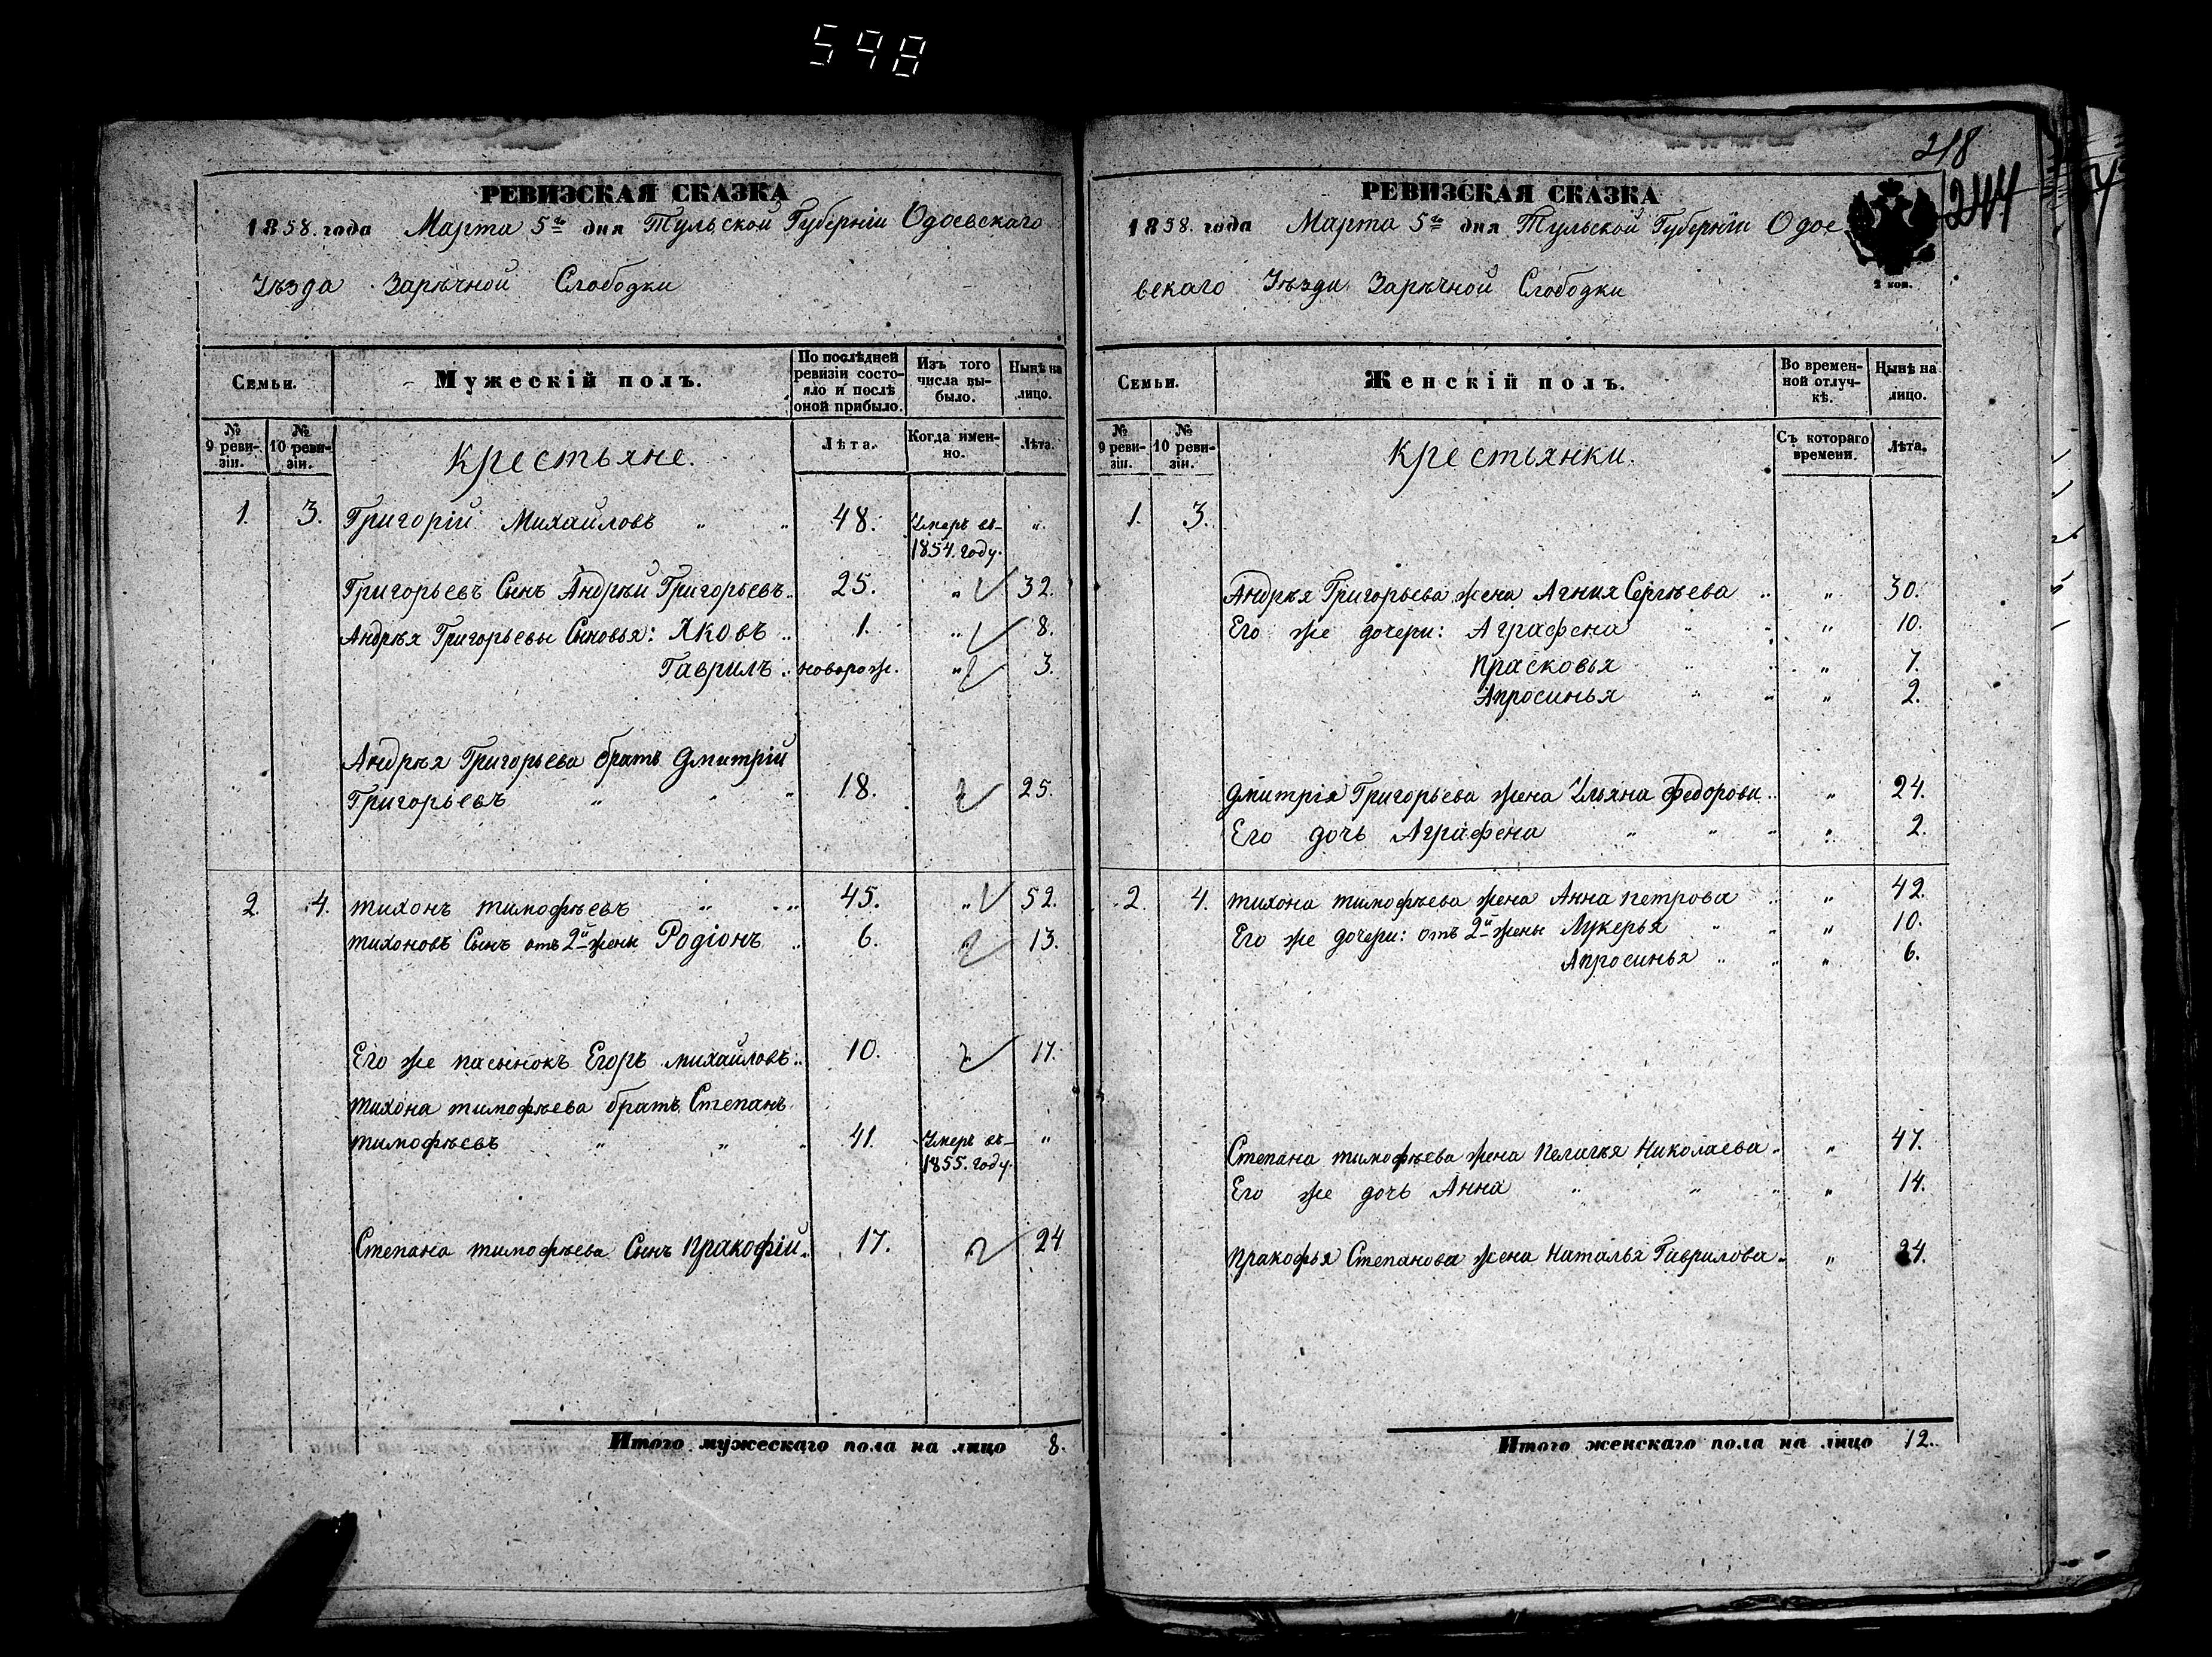 598
РЕВИЗСКАЯ СКАЗКА
1858. года Марта 5го дня Тульской Губерніи Одоевскаго
Уѣзда Зарѣчной Слободки
Семьи.
Мужескій полъ.
По послѣдней ревизіи состояло и послѣ оной прибыло.
Изъ того числа выбыло.
Нынѣ на лицо.
№ 9 ревизіи.
№ 10 ревизіи.
Крестьяне.
Лѣта.
Когда именно.
Лѣта.
1. 3. Григорій Михайловъ „ „ 48. Умеръ въ „
1854. году.
Григорьевъ Сынъ Андрѣй Григорьевъ „ 25. „ 32.
Андрѣя Григорьевы Сыновья: Яковъ „ 1. „ 8.
Гаврилъ „ новорож. „ 3.
Андрѣя Григорьева братъ Дмитрій
Григорьевъ „ „ „ 18. „ 25.
2. 4. Тихонъ Тимофѣевъ „ „ 45. „ 52.
Тихоновъ Сынъ отъ 2й жены Родіонъ „ 6. „ 13.
Его же пасынокъ Егоръ Михайловъ „ 10. „ 17.
Тихона Тимофѣева братъ Степанъ
Тимофѣевъ „ „ „ 41. Умеръ въ „
1855. году.
Степана Тимофѣева Сынъ Пракофій „ 17. „ 24
Итого мужескаго пола на лицо 8.
218
244
РЕВИЗСКАЯ СКАЗКА
1858. года Марта 5го дня Тульской Губерніи Одое
вскаго Уѣзда Зарѣчной Слободки
2 коп.
Семьи.
Женскій полъ.
Во временной отлучкѣ.
Нынѣ на лицо.
№ 9 ревизіи.
№ 10 ревизіи.
Крестьянки.
Съ котораго времени.
Лѣта.
1. 3.
Андрѣя Григорьева жена Агния Сергѣева „ „ 30.
Его же дочери: Аграфена „ „ „ 10.
Прасковья „ „ „ 7.
Апросинья „ „ „ 2.
Дмитрія Григорьева жена Ульяна Федорова „ „ 24.
Его дочь Аграфена „ „ „ „ 2.
2. 4. Тихона Тимофѣева жена Анна Петрова „ „ 42.
Его же дочери: отъ 2й жены Лукерья „ „ „ 10.
Апросинья „ „ „ 6.
Степана Тимофѣева жена Пелагѣя Николаева „ „ 47.
Его же дочь Анна „ „ „ „ 14.
Пракофья Степанова жена Наталья Гаврилова „ „ 24.
Итого женскаго пола на лицо 12.